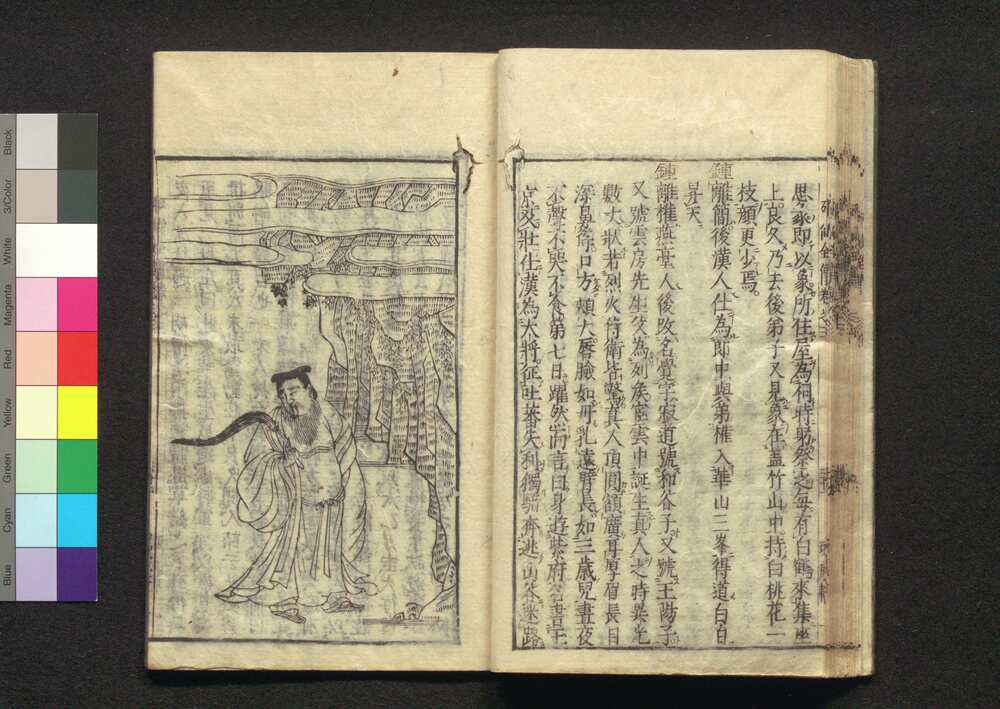 思家即以象所住屋為祠時時祭之每有白鶴來集座
上良久乃去後弟子又見象在蓋竹山中持白桃花一
技顏更少焉
鍾離簡後漢人仕為郎中與弟權入華山三峯得道白日
昇天
鍾離權燕臺人後改名覺字寂道號和谷子又號王陽子
又號雲房先生父為列侯宦雲中誕生真人之時異光
數丈狀若烈火侍衛皆驚真人頂圓額廣耳厚眉長目
深鼻聳口方頰大唇臉如丹乳遠臂長如三歲兒晝夜
不聲不哭不食第七日躍然而言曰身遊紫府名書玉
京及壯仕漢為大將征吐蕃失利獨騎奔逃山谷迷路
Black
3/Color
White
Magenta
Red
Yellow
Green
Cyan
Blue